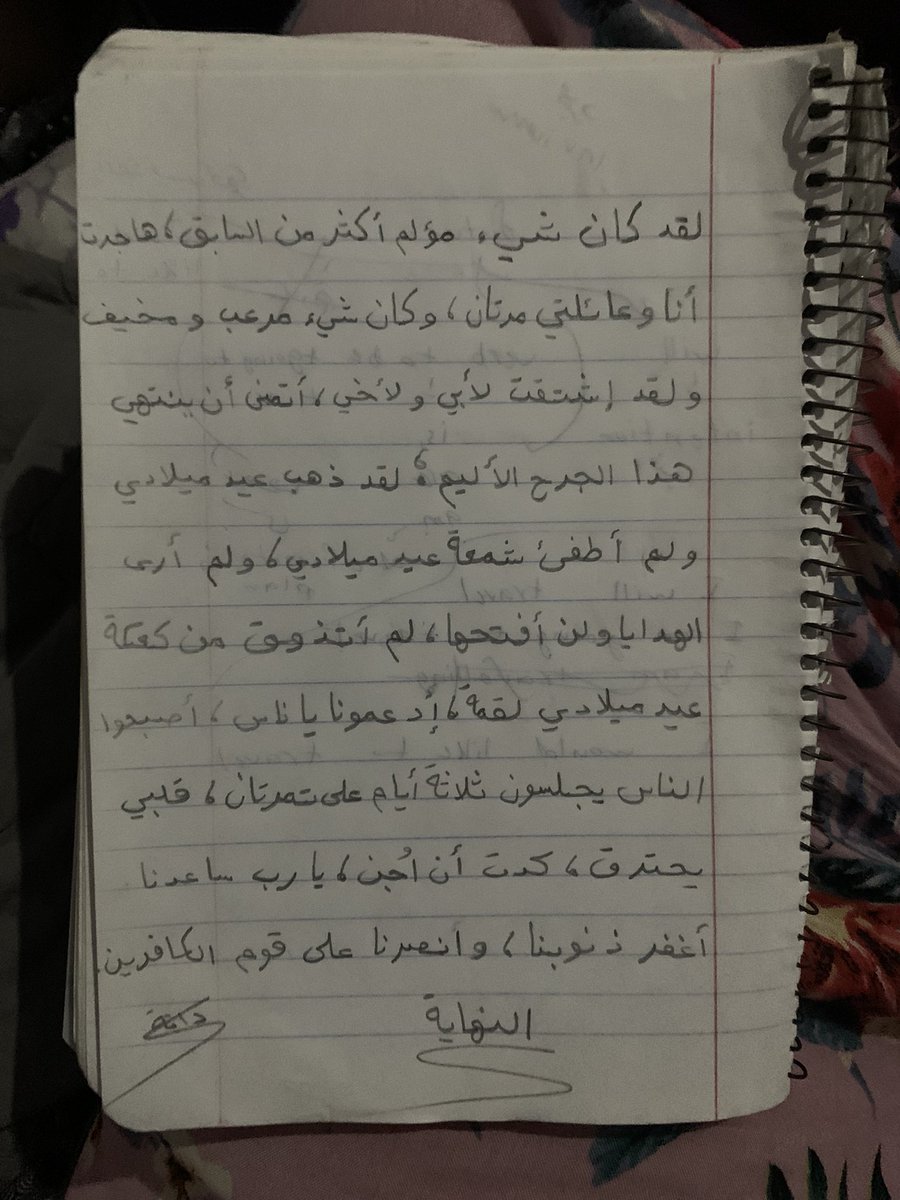 لقد كان شيء مؤلم أكثر من السابق، هاجرت
أنا وعائلتي مرتان، وكان شيء مرعب و مخيف
و لقد إشتقت لأبي و لأخي، أتمنى أن ينتهي
هذا الجرح الأليم، لقد ذهب عيد ميلادي
ولم أطفئ شمعة عيد ميلادي، ولم أرى
الهدايا ولن أفتحها، لم أتذوق من كعكة
عيد ميلادي لقمة، إدعمونا يا ناس، أصبحوا
الناس يجلسون ثلاثة أيام على تمرتان، قلبي
يحترق، كدت أن اُجن، يا رب ساعدنا
أغفر ذنوبنا، وانصرنا على قوم الكافرين.
النهاية